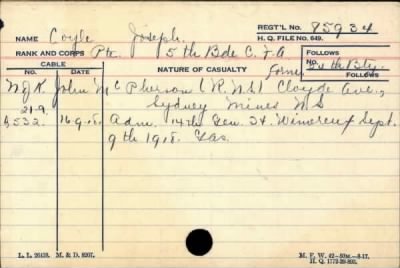 REGT'L No. 85934
NAME Coyle Joseph.
H. Q. FILE NO. 649.
RANK AND CORPS Pte. 5th Bde C.F.A
FOLLOWS
CABLE
NO. DATE NATURE OF CASUALTY
No.
FOLLOWS
N of K. John Mc Pherson ( Clyde Ave.,
21-9. Sydney Mines N S
532. 16-9-18. Adm. 14th Gen. Wimereux Sept.
9th 1918. Gas.
L. L. 26418. M. & D. 8207.
M. F. W. 42-50M.-8-17.
H. Q. 1772-39-893.